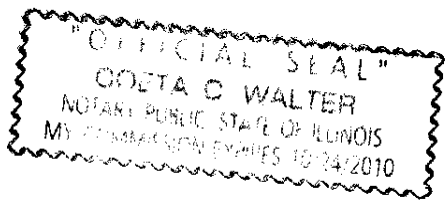 "OFFICIAL SEAL"
WALTER
NOTARY PUBLIC STATE OF ILLINOIS
MY COMMISSION EXPIRES 10/24/2010